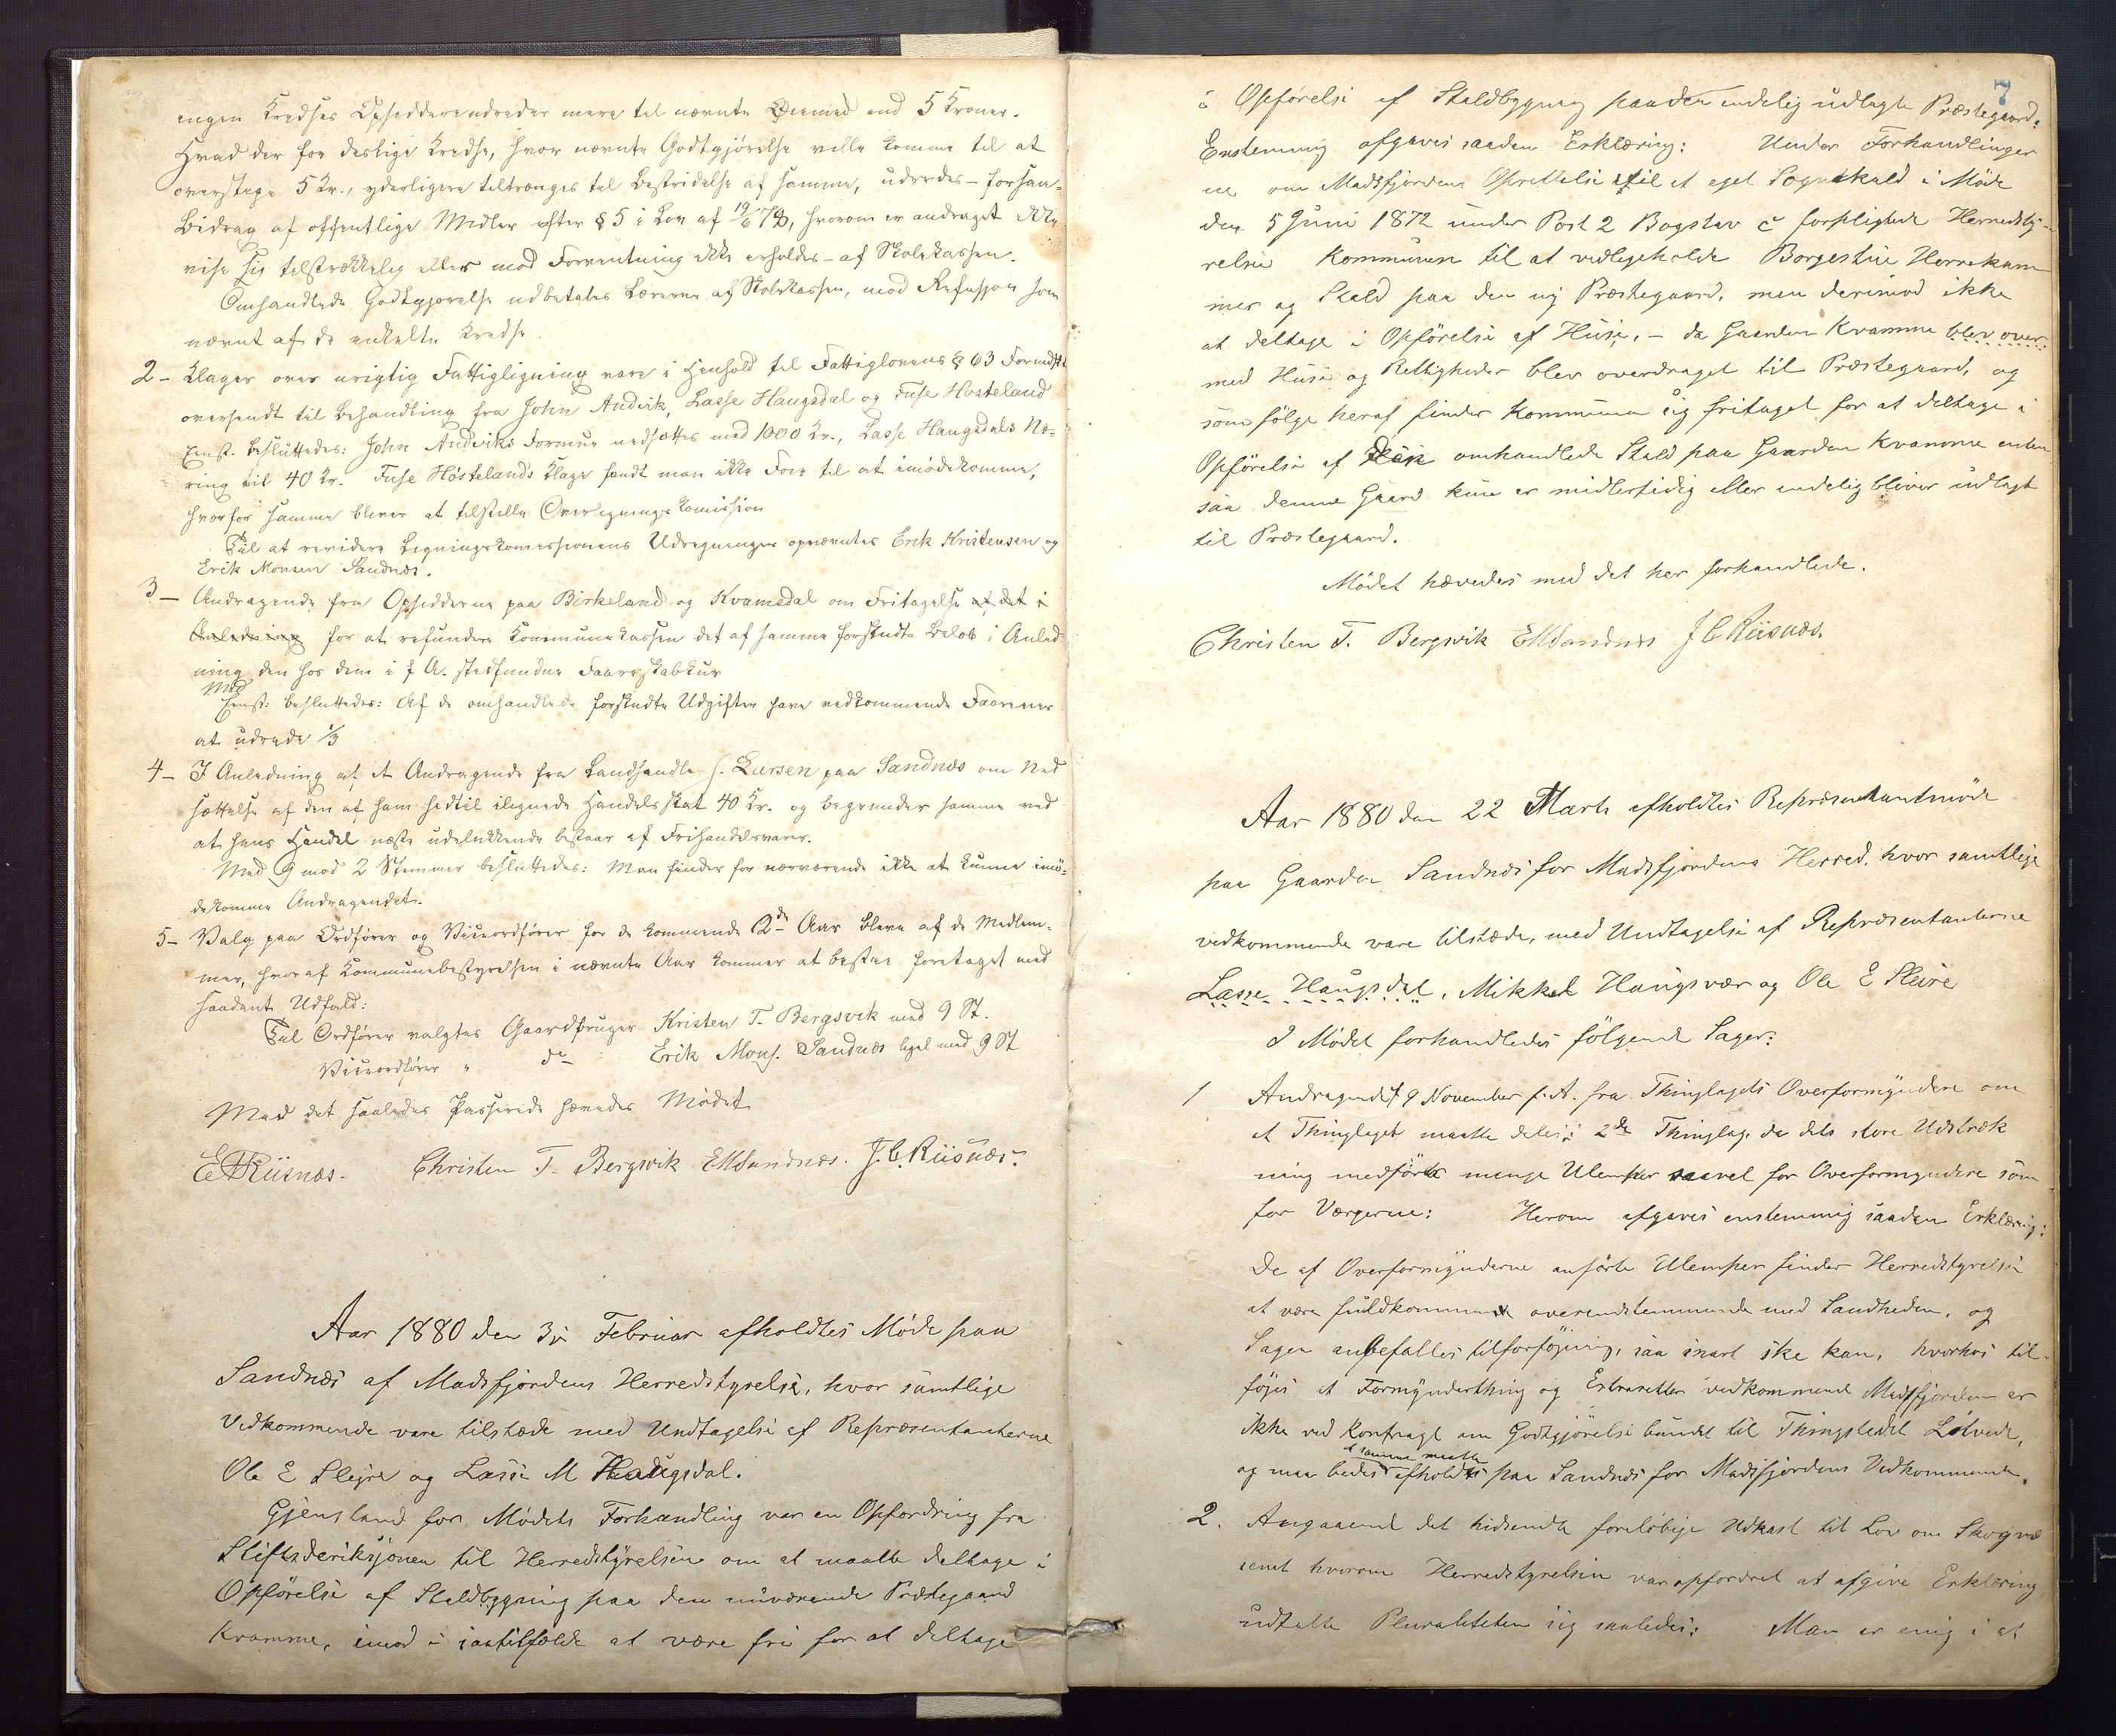 ingen Kredses Opsiddere udreder mere til nævnte Øiemed end 5 Kroner.
Hvad der for deslige Kredse, hvor nævnte Godtgjörelse ville komme til at
overstige 5 Kr., yderligere tiltrænges til Bestridelse af samme, udredes – forsaa-
Bidrag af offentlige Midler efter § 5 i Lov af 19/6 78, hvorom er andraget ikke
vise sig tilstrækkelig eller mod Forventning ikke erholdes – af Skolekassen.
Omhandlede Godtgjørelse udbetales Lærerne af Skolekassen, mod Refusjon som
nævnt af de enkelte Kredse.
2 – Klager over urigtig Fattigligning vare i Henhold til Fattiglovens § 63
oversendt til Behandling fra John Andvik, Lasse Haugsdal og Fuse Hosteland
Enst. besluttedes: John Andviks Formue nedsættes med 1000 Kr., Lasse Haugsdals Næ-
ring til 40 Kr. Fuse Höstelands Klage fandt man ikke Foie til at imödekomme,
hvorfor samme bliver at tilstille Overligningskomission
Til at revidere Ligningskomissionens Udregninger opnævntes Erik Kristensen og
Erik Monsen Sandnæs.
3 – Andragende fra Opsidderne paa Birkeland og Kvamsdal om Fritagelse af det i
Anledning for at refundere Kommunekassen det af samme forskudte Beløb i Anled
ning den hos dem i f. A. stedfundne Faareskabkur
Med
Enst: besluttedes: Af de omhandlede forskudte Udgifter have vedkommende Faareeier
at udrede 1/3
4 – I Anledning af et Andragende fra Landhandler J. Larsen paa Sandnæs om Ned
sættelse af den af ham hidtil ilignede Handelsskat 40 Kr. og begrunder samme ved
at hans Handel næste udelukkende bestaar af Frihandelsvarer.
Med 9 mod 2 Stemmer besluttedes: Man finder for nærværende ikke at kunne imö-
dekomme Andragendet.
5 – Valg paa Ordfører og Viceordfører for de kommende 2de Aar bleve af de Medlem-
mer, hvoraf Kommunebestyrelsen i nævnte Aar kommer at bestaa foretaget med
saadant Udfald:
Til Ordfører valgtes Gaardbruger Kristen T. Bergsvik med 9 St.
Viceordfører " do Erik Mons. Sandnæs ligel med 9 St
Med det saaledes Passerede hævedes Mødet
E Riisnæs. Christen T. Bergsvik EMSandnæs. J. C. Riisnæs.
Aar 1880 den 3je Februar afholdtes Møde paa
Sandnæs af Madsfjordens Herredstyrelse, hvor samtlige
Vedkommende vare tilstæde med Undtagelse af Repræsentanterne
Ole E Slejre og Lasse M Haugsdal.
Gjenstand for Mødets Forhandling var en Opfordring fra
Stiftsderiksjonen til Herredstyrelsen om at maatte deltage i
Opførelse af Staldbygning paa den nuværende Præstegaard
Kvamme, imod i saatilfælde at være fri for at deltage
7
i Opførelse af Staldbygning paa den endelig udlagte Præstegaard:
Enstemmig afgaves saaden Erklæring: Under Forhandlinger
ne om Madsfjordens Oprettelse til et eget Sognekald i Møde
den 5 Juni 1872 under Post 2 Bogstav c forpligtede Herredsty-
relsen Kommunen til at vedligeholde Borgestue Herrekam
mer og Stald paa den ny Præstegaard, men derimod ikke
at deltage i Opførelse af Huse, – da Gaarden Kvamme blev over-
med Huse og Rettigheder blev overdraget til Præstegaard, og
som følge heraf finder Kommunen sig fritaget for at deltage i
Opførelse af omhandlede Stald paa Gaarden Kvamme enten
saa denne Gaard kun er midlertidig eller endelig bliver udlagt
til Præstegaard.
Mödet hævedes med det her forhandlede.
Christen T. Bergsvik EMSandnæs J C Riisnæs.
Aar 1880 den 22 Marts afholdtes Repræsentantmöde
paa Gaarden Sandnæs for Madsfjordens Herred, hvor samtlige
vedkommende vare tilstæde, med Undtagelse af Repræsentanterne
Lasse Haugsdal, Mikkel Haugsvær og Ole E Sleire
I Mödet forhandledes fölgende Sager:
1 Andragende 9 November f. A. fra Thinglagets Overformyndere om
at Thinglaget maatte deles i 2de Thinglag, da dets store Udstræk
ning medförte mange Ulemper saavel for Overformyndere som
for Værgerne: Herom afgaves enstemmig saaden Erklæring:
De af Overformynderne anförte Ulemper finder Herredstyrelsen
at være fuldkommen overensstemmende med Sandheden, og
Sagen anbefalles tilforföjning, saa snart ske kan, hvorhos til-
föjes at Formynderthing og Extraretter vedkommende Madsfjorden er
ikke ved Kontragt om Godtgjörelse bundet til Thingstedet Lötvedt,
at samme maatte
og man bedes afholdes paa Sandnæs for Madsfjordens Vedkommende.
2. Angaaende det hidsendte foreløbige Udkast til Lov om Skogvæ
senet hvorom Herredstyrelsen var opfordret at afgive Erklæring
udtalte Pluraliteten sig saaledes: Man er enig i at